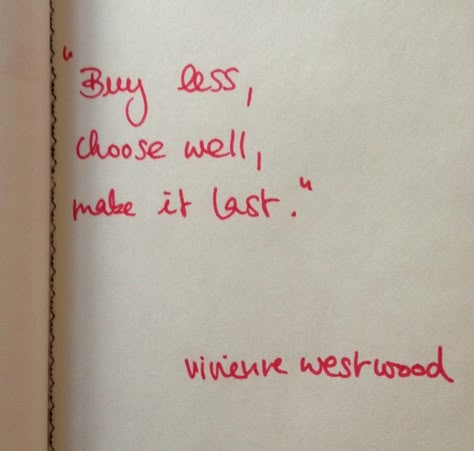 "Buy less,
choose well,
make it last."
vivienne westwood